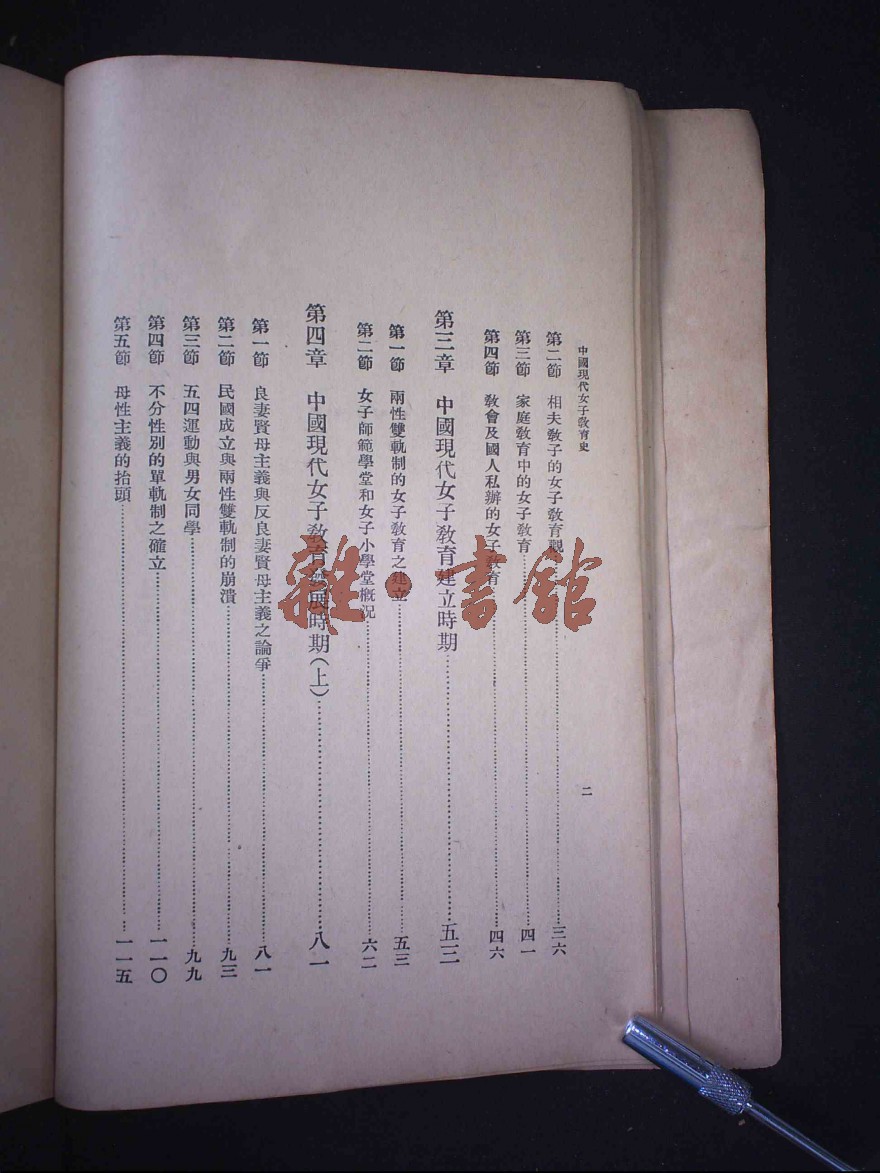 中國現代女子敎育史
二
第二節 相夫敎子的女子敎育觀……三六
第三節 家庭敎育中的女子敎育……四一
第四節 敎會及國人私辦的女子敎育……四六
第三章 中國現代女子敎育建立時期……五三
第一節 兩性雙軌制的女子敎育之建立……五三
第二節 女子師範學堂和女子小學堂槪況……六二
第四章 中國現代女子敎育發展時期(上)……八一
第一節 良妻賢母主義與反良妻賢母主義之論爭……八一
第二節 民國成立與兩性雙軌制的崩潰……九三
第三節 五四運動與男女同學……九九
第四節 不分性別的單軌制之確立……一一〇
第五節 母性主義的抬頭……一一五
雜·書館